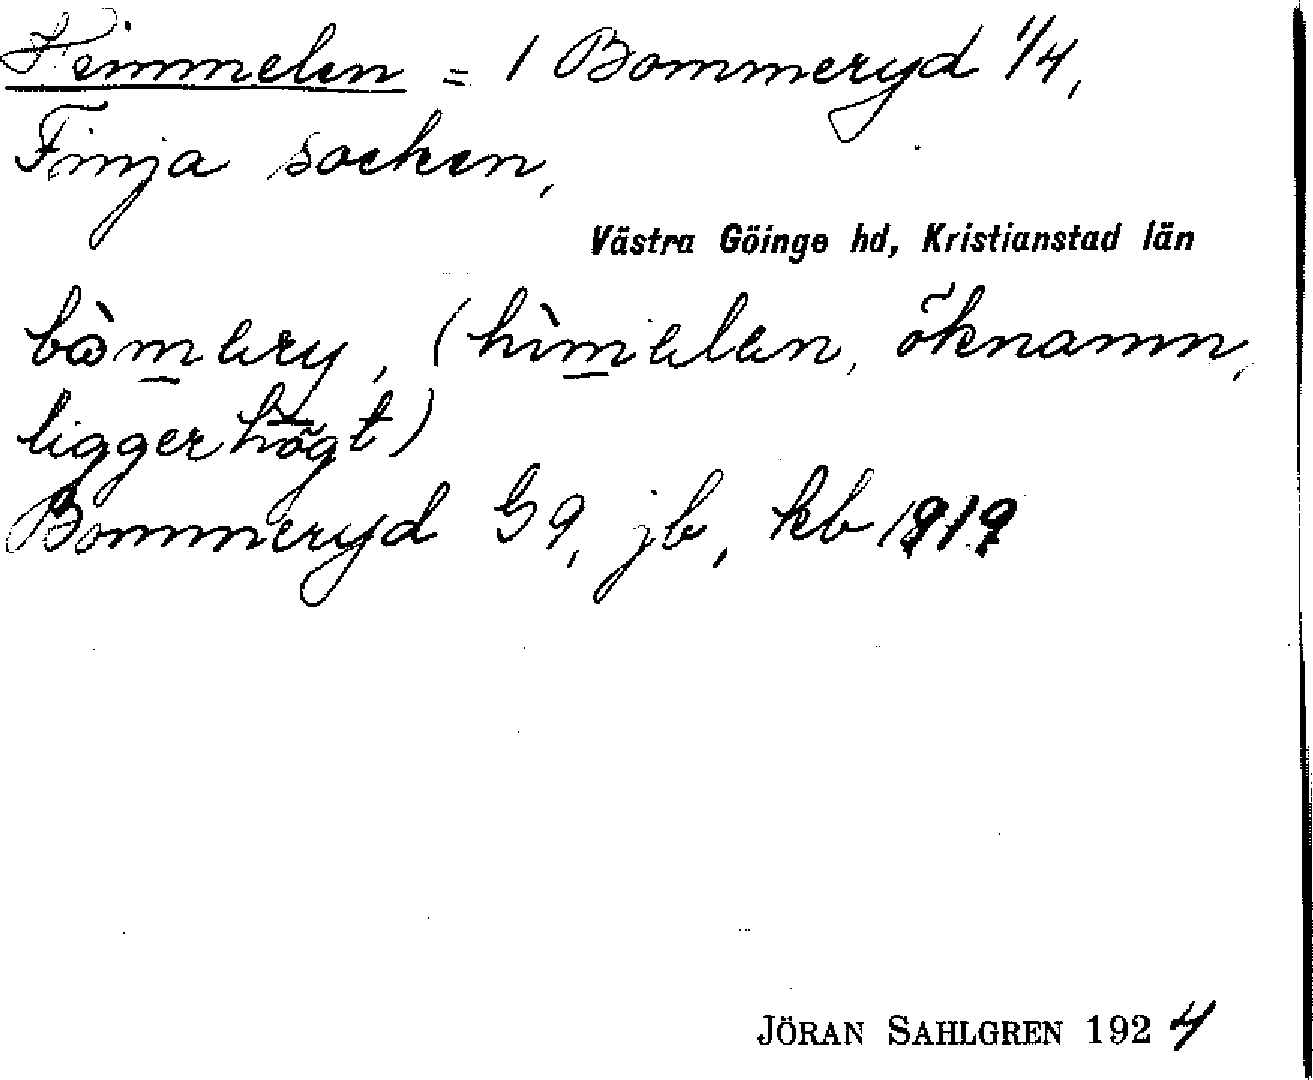 Himmelen = 1 Bommeryd 1/4,
Finja socken,
Västra Göinge hd, Kristianstad län
bòmery, (hìmelen, öknamn,
ligger högt)
Bommeryd G9, jb, kb 1919
JÖRAN SAHLGREN 1924